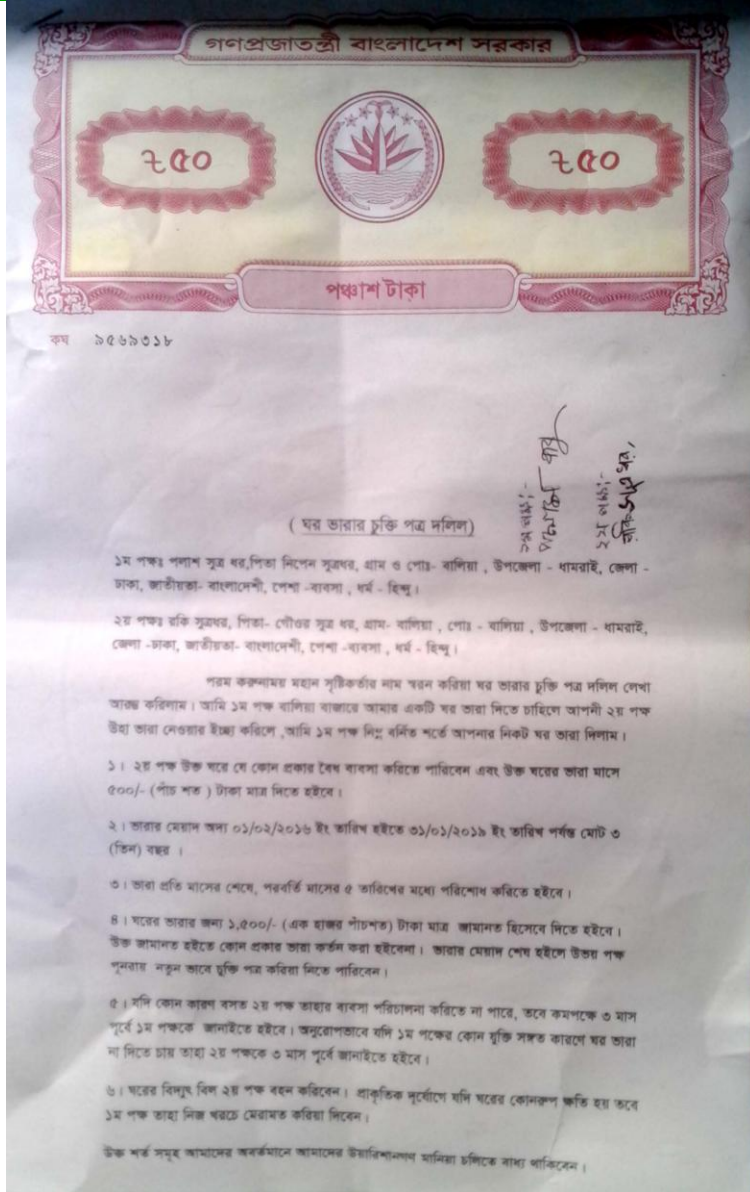 গণপ্রজাতন্ত্রী বাংলাদেশ সরকার
৳ ৫০
৳ ৫০
পঞ্চাশ টাকা
কঘ ৯৫৬৯৩১৮
১ম পক্ষ:-
২য় পক্ষ:-
( ঘর ভারার চুক্তি পত্র দলিল)
১ম পক্ষঃ পলাশ সুত্র ধর,পিতা নিপেন সুত্রধর, গ্রাম ও পোঃ- বালিয়া , উপজেলা - ধামরাই, জেলা -
ঢাকা, জাতীয়তা- বাংলাদেশী, পেশা -ব্যবসা , ধর্ম - হিন্দু।
২য় পক্ষঃ রকি সুত্রধর, পিতা- গৌওর সুত্র ধর, গ্রাম- বালিয়া , পোঃ - বালিয়া , উপজেলা - ধামরাই,
জেলা -ঢাকা, জাতীয়তা- বাংলাদেশী, পেশা -ব্যবসা , ধর্ম - হিন্দু।
পরম করুনাময় মহান সৃষ্টিকর্তার নাম স্বরন করিয়া ঘর ভারার চুক্তি পত্র দলিল লেখা
আরম্ভ করিলাম। আমি ১ম পক্ষ বালিয়া বাজারে আমার একটি ঘর ভারা দিতে চাহিলে আপনী ২য় পক্ষ
উহা ভারা নেওয়ার ইচ্ছা করিলে ,আমি ১ম পক্ষ নিম্ন বর্নিত শর্তে আপনার নিকট ঘর ভারা দিলাম।
১। ২য় পক্ষ উক্ত ঘরে যে কোন প্রকার বৈধ ব্যবসা করিতে পারিবেন এবং উক্ত ঘরের ভারা মাসে
৫০০/- (পাঁচ শত ) টাকা মাত্র দিতে হইবে।
২। ভারার মেয়াদ অদ্য ০১/০২/২০১৬ ইং তারিখ হইতে ৩১/০১/২০১৯ ইং তারিখ পর্যন্ত মোট ৩
(তিন) বছর ।
৩। ভারা প্রতি মাসের শেষে, পরবর্তি মাসের ৫ তারিখের মধ্যে পরিশোধ করিতে হইবে।
৪। ঘরের ভারার জন্য ১,৫০০/- (এক হাজর পাঁচশত) টাকা মাত্র জামানত হিসেবে দিতে হইবে।
উক্ত জামানত হইতে কোন প্রকার ভারা কর্তন করা হইবেনা। ভারার মেয়াদ শেষ হইলে উভয় পক্ষ
পুনরায় নতুন ভাবে চুক্তি পত্র করিয়া নিতে পারিবেন।
৫। যদি কোন কারণ বসত ২য় পক্ষ তাহার ব্যবসা পরিচালনা করিতে না পারে, তবে কমপক্ষে ৩ মাস
পূর্বে ১ম পক্ষকে জানাইতে হইবে। অনুরোপভাবে যদি ১ম পক্ষের কোন যুক্তি সঙ্গত কারণে ঘর ভারা
না দিতে চায় তাহা ২য় পক্ষকে ৩ মাস পূর্বে জানাইতে হইবে।
৬। ঘরের বিদ্যুৎ বিল ২য় পক্ষ বহন করিবেন। প্রাকৃতিক দূর্যোগে যদি ঘরের কোনরুপ ক্ষতি হয় তবে
১ম পক্ষ তাহা নিজ খরচে মেরামত করিয়া দিবেন।
উক্ত শর্ত সমূহ আমাদের অবর্তমানে আমাদের উয়ারিশানগণ মানিয়া চলিতে বাধ্য থাকিবেন।